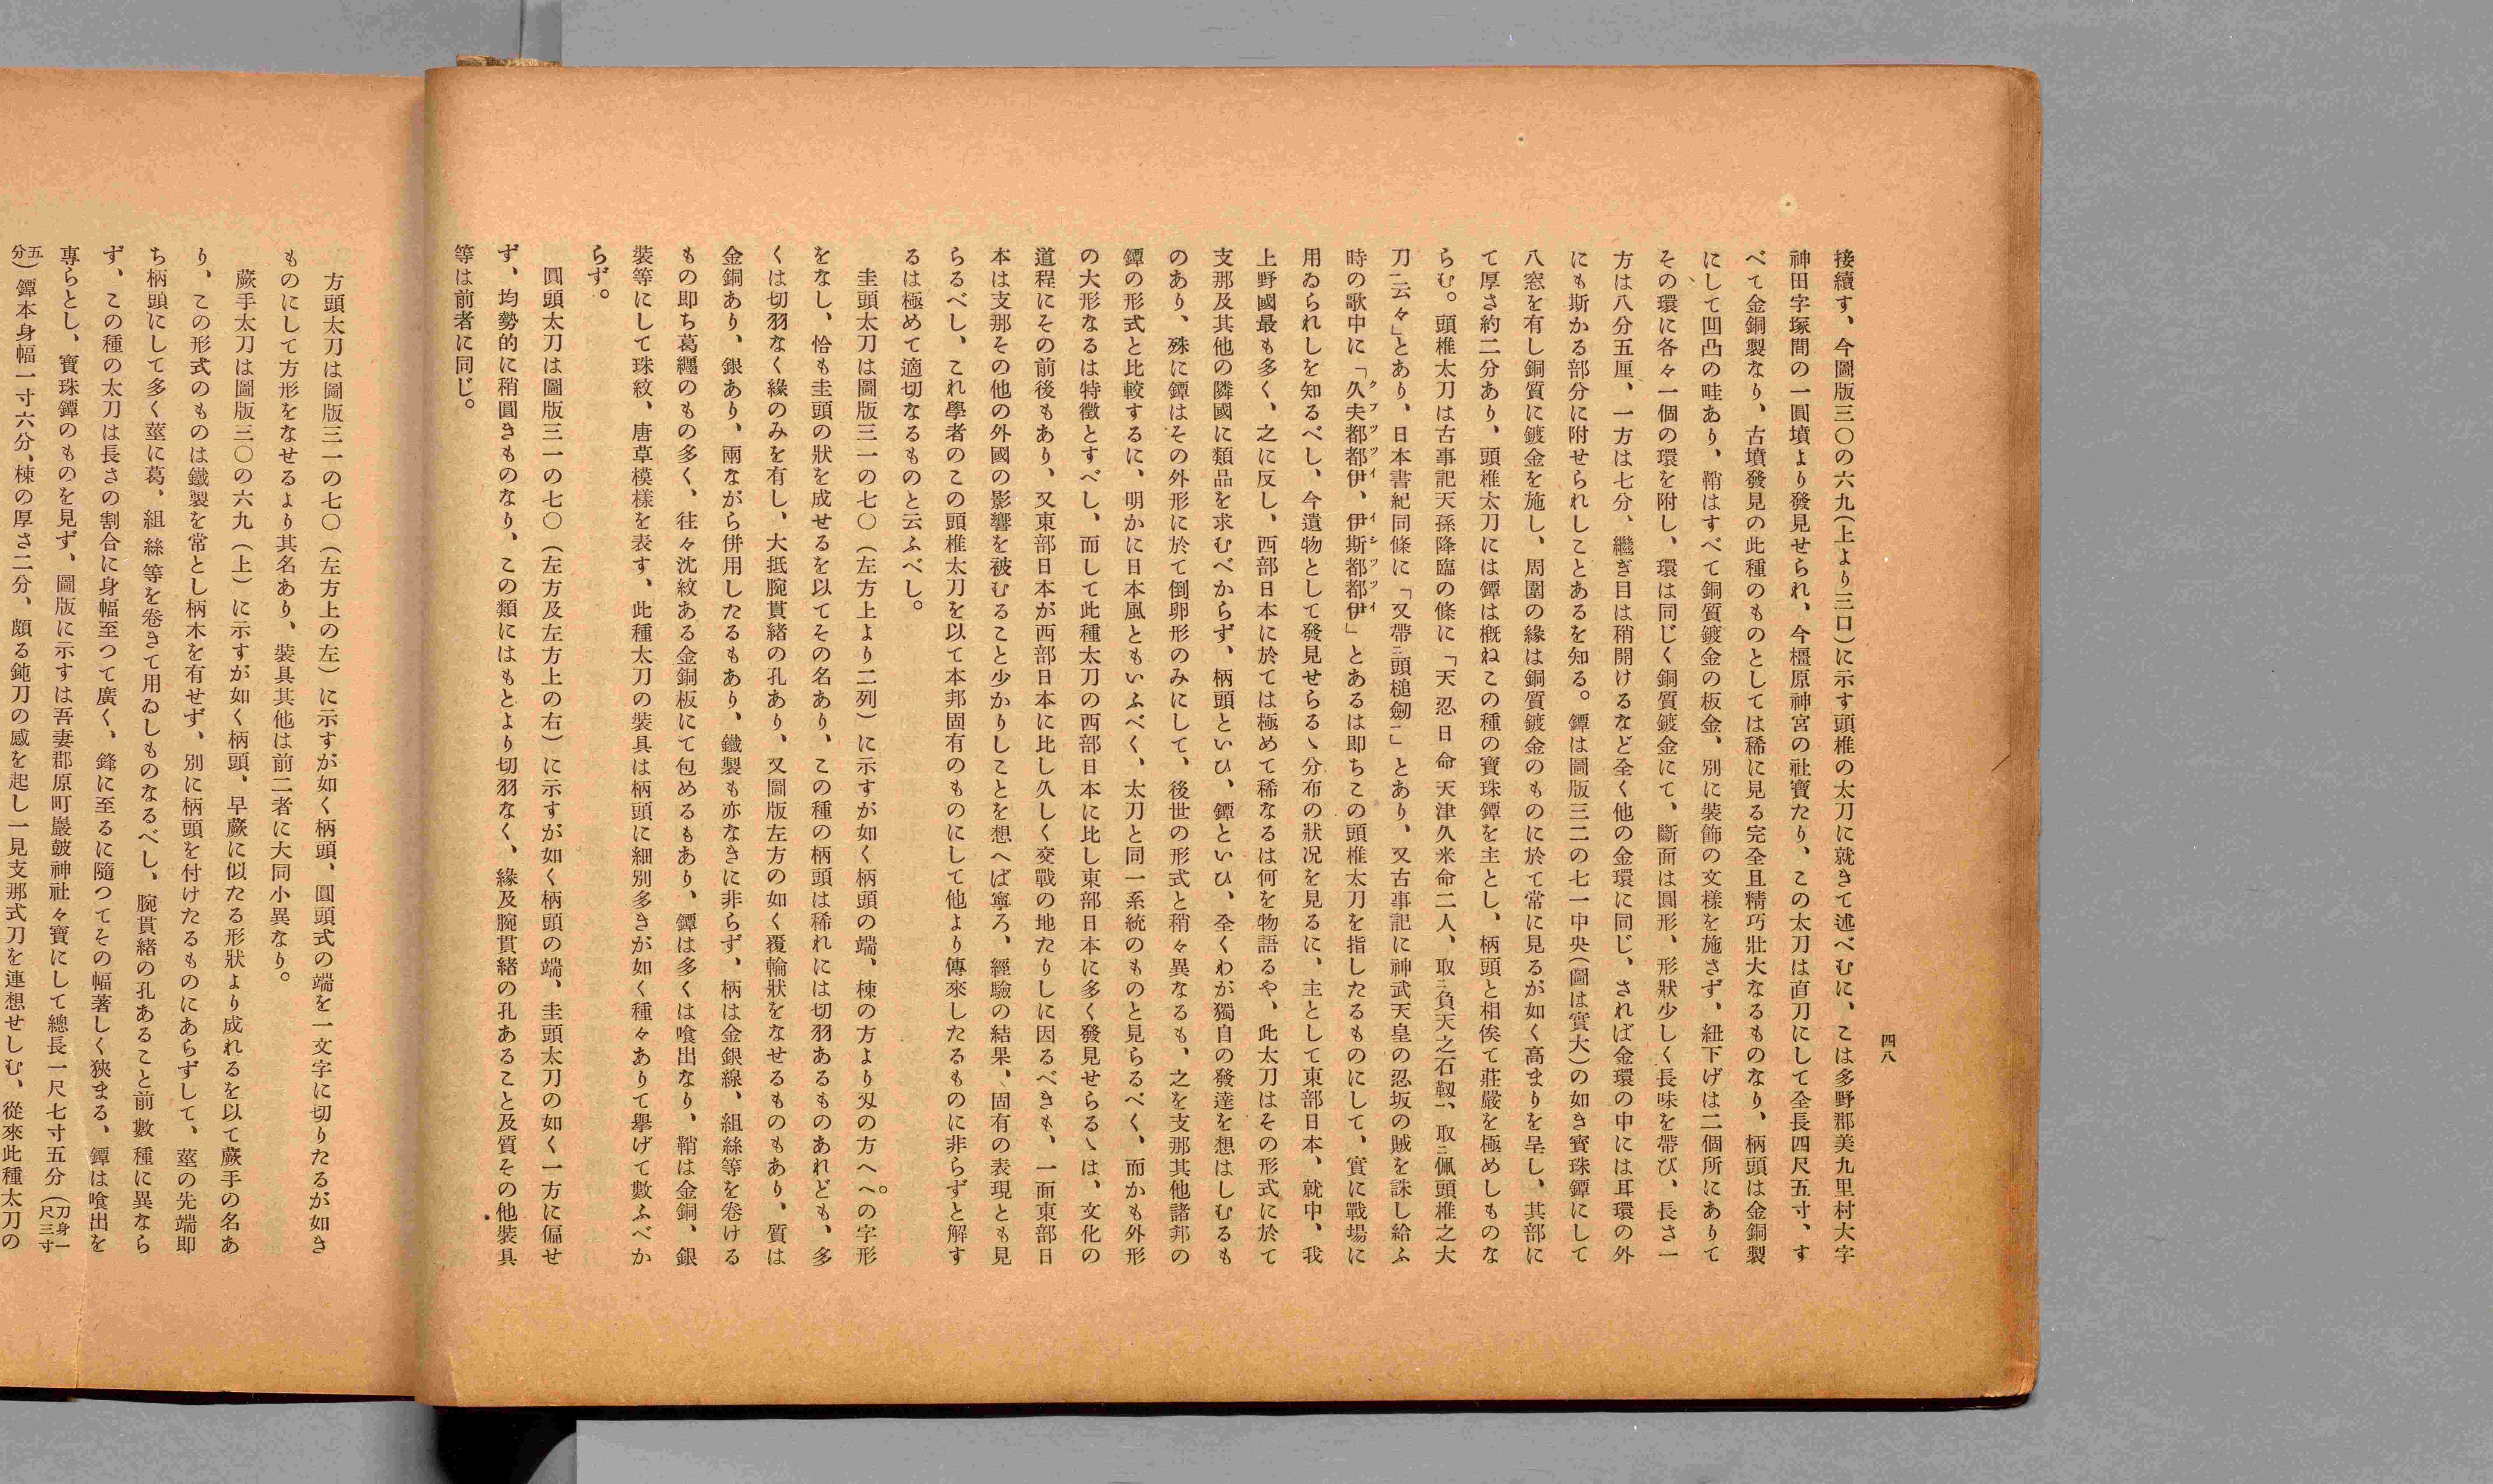 四八
接續す、今圖版三〇の六九(上より三口)に示す頭椎の太刀に就きて述べむに、こは多野郡美九里村大字
神田字塚間の一圓墳より發見せられ、今橿原神宮の社寶たり、この太刀は直刀にして全長四尺五寸、す
べて金銅製なり、古墳發見の此種のものとしては稀に見る完全且精巧壯大なるものなり、柄頭は金銅製
にして凹凸の畦あり、鞘はすべて銅質鍍金の板金、別に裝飾の文樣を施さず、紐下げは二個所にありて
その環に各々一個の環を附し、環は同じく銅質鍍金にて、斷面は圓形、形狀少しく長味を帶び、長さ一
方は八分五厘、一方は七分、繼ぎ目は稍開けるなど全く他の金環に同じ、されば金環の中には耳環の外
にも斯かる部分に附せられしことあるを知る。鐔は圖版三二の七一中央(圖は實大)の如き寶珠鐔にして
八窓を有し銅質に鍍金を施し、周圍の緣は銅質鍍金のものに於て常に見るが如く高まりを呈し、其部に
て厚さ約二分あり、頭椎太刀には鐔は槪ねこの種の寶珠鐔を主とし、柄頭と相俟て莊嚴を極めしものな
らむ。頭椎太刀は古事記天孫降臨の條に「天忍日命天津久米命二人、取二負天之石靱一、取二佩頭椎之大
刀一云々」とあり、日本書紀同條に「又帶二頭槌劒一」とあり、又古事記に神武天皇の忍坂の賊を誅し給ふ
時の歌中に「久夫都都伊、伊斯都都伊」とあるは即ちこの頭椎太刀を指したるものにして、實に戰場に
クブツツイ イシツツイ
用ゐられしを知るべし、今遺物として發見せらるゝ分布の狀況を見るに、主として東部日本、就中、我
上野國最も多く、之に反し、西部日本に於ては極めて稀なるは何を物語るや、此太刀はその形式に於て
支那及其他の隣國に類品を求むべからず、柄頭といひ、鐔といひ、全くわが獨自の發達を想はしむるも
のあり、殊に鐔はその外形に於て倒卵形のみにして、後世の形式と稍々異なるも、之を支那其他諸邦の
鐔の形式と比較するに、明かに日本風ともいふべく、太刀と同一系統のものと見らるべく、而かも外形
の大形なるは特徵とすべし、而して此種太刀の西部日本に比し東部日本に多く發見せらるゝは、文化の
道程にその前後もあり、又東部日本が西部日本に比し久しく交戰の地たりしに因るべきも、一面東部日
本は支那その他の外國の影響を被むること少かりしことを想へば寧ろ、經驗の結果、固有の表現とも見
らるべし、これ學者のこの頭椎太刀を以て本邦固有のものにして他より傳來したるものに非らずと解す
るは極めて適切なるものと云ふべし。
圭頭太刀は圖版三一の七〇(左方上より二列)に示すが如く柄頭の端、棟の方より刄の方へへの字形
をなし、恰も圭頭の狀を成せるを以てその名あり、この種の柄頭は稀れには切羽あるものあれども、多
くは切羽なく緣のみを有し、大抵腕貫緒の孔あり、又圖版左方の如く覆輪狀をなせるものもあり、質は
金銅あり、銀あり、兩ながら併用したるもあり、鐵製も亦なきに非らず、柄は金銀線、組絲等を卷ける
もの即ち葛纒のもの多く、往々沈紋ある金銅板にて包めるもあり、鐔は多くは喰出なり、鞘は金銅、銀
裝等にして珠紋、唐草模樣を表す、此種太刀の裝具は柄頭に細別多きが如く種々ありて擧げて數ふべか
らず。
圓頭太刀は圖版三一の七〇(左方及左方上の右)に示すが如く柄頭の端、圭頭太刀の如く一方に偏せ
ず、均勢的に稍圓きものなり、この類にはもとより切羽なく、緣及腕貫緒の孔あること及質その他裝具
等は前者に同じ。
方頭太刀は圖版三一の七〇(左方上の左)に示すが如く柄頭、圓頭式の端を一文字に切りたるが如き
ものにして方形をなせるより其名あり、裝具其他は前二者に大同小異なり。
蕨手太刀は圖版三〇の六九(上)に示すが如く柄頭、早蕨に似たる形狀より成れるを以て蕨手の名あ
り、この形式のものは鐵製を常とし柄木を有せず、別に柄頭を付けたるものにあらずして、莖の先端即
ち柄頭にして多く莖に葛、組絲等を卷きて用ゐしものなるべし、腕貫緒の孔あること前數種に異なら
ず、この種の太刀は長さの割合に身幅至つて廣く、鋒に至るに隨つてその幅著しく狹まる、鐔は喰出を
專らとし、寶珠鐔のものを見ず、圖版に示すは吾妻郡原町巖皷神社々寶にして總長一尺七寸五分(刀身一尺三寸
五分)鐔本身幅一寸六分、棟の厚さ二分、頗る鈍刀の感を起し一見支那式刀を連想せしむ、從來此種太刀の